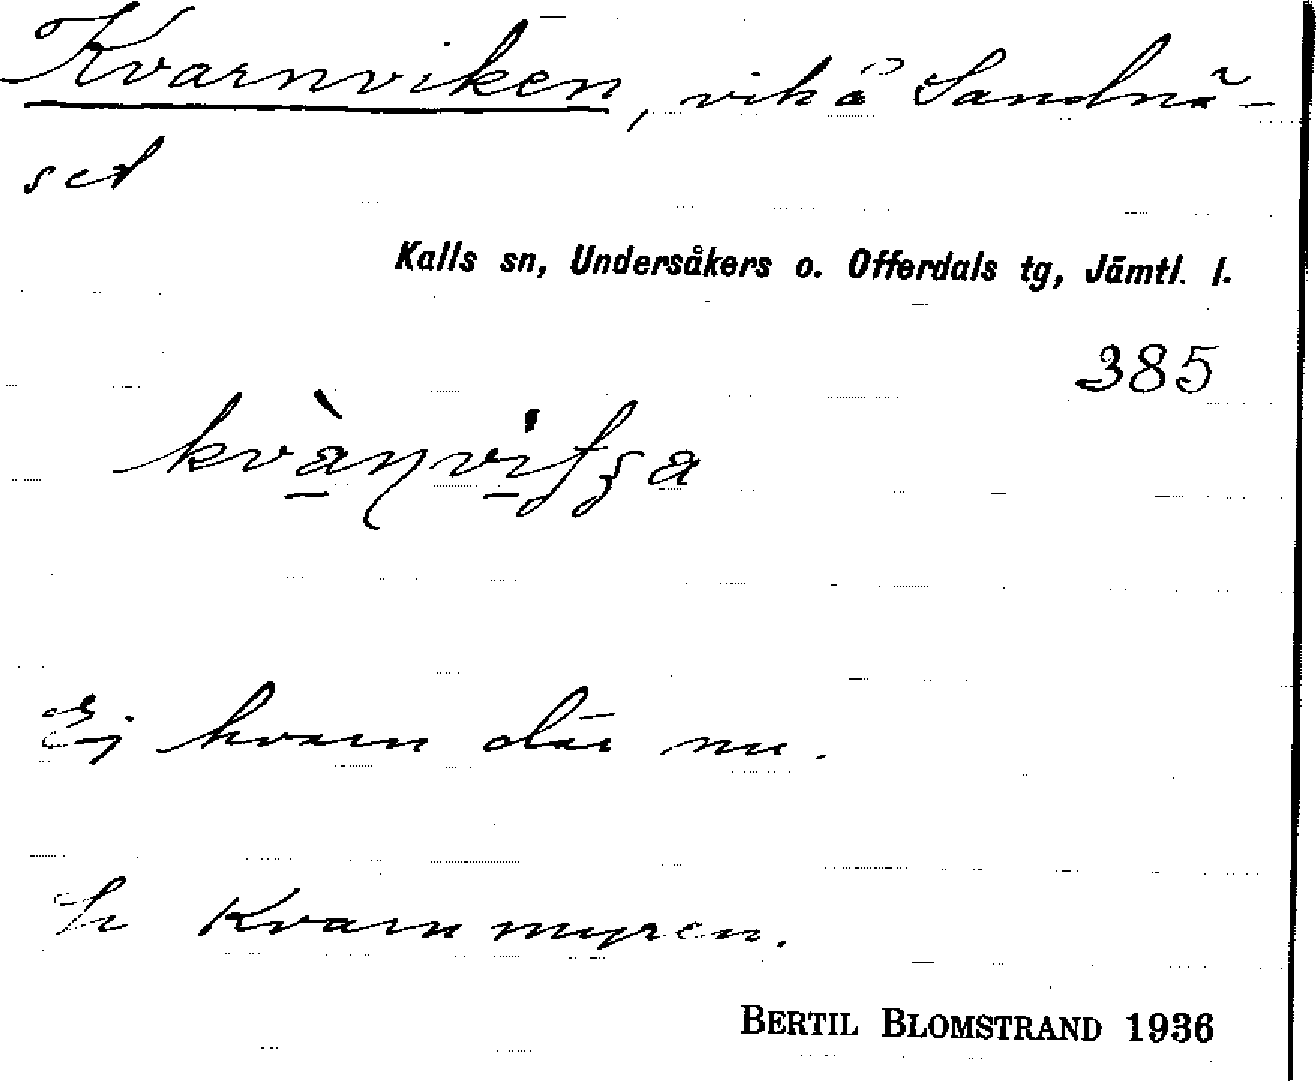 Kvarnviken, vik å Sandnä-
set
Kalls sn, Undersåkers o. Offerdals tg, Jämtl. l.
385
Ej kvarn där nu.
Se Kvarnmyren.
BERTIL BLOMSTRAND 1936